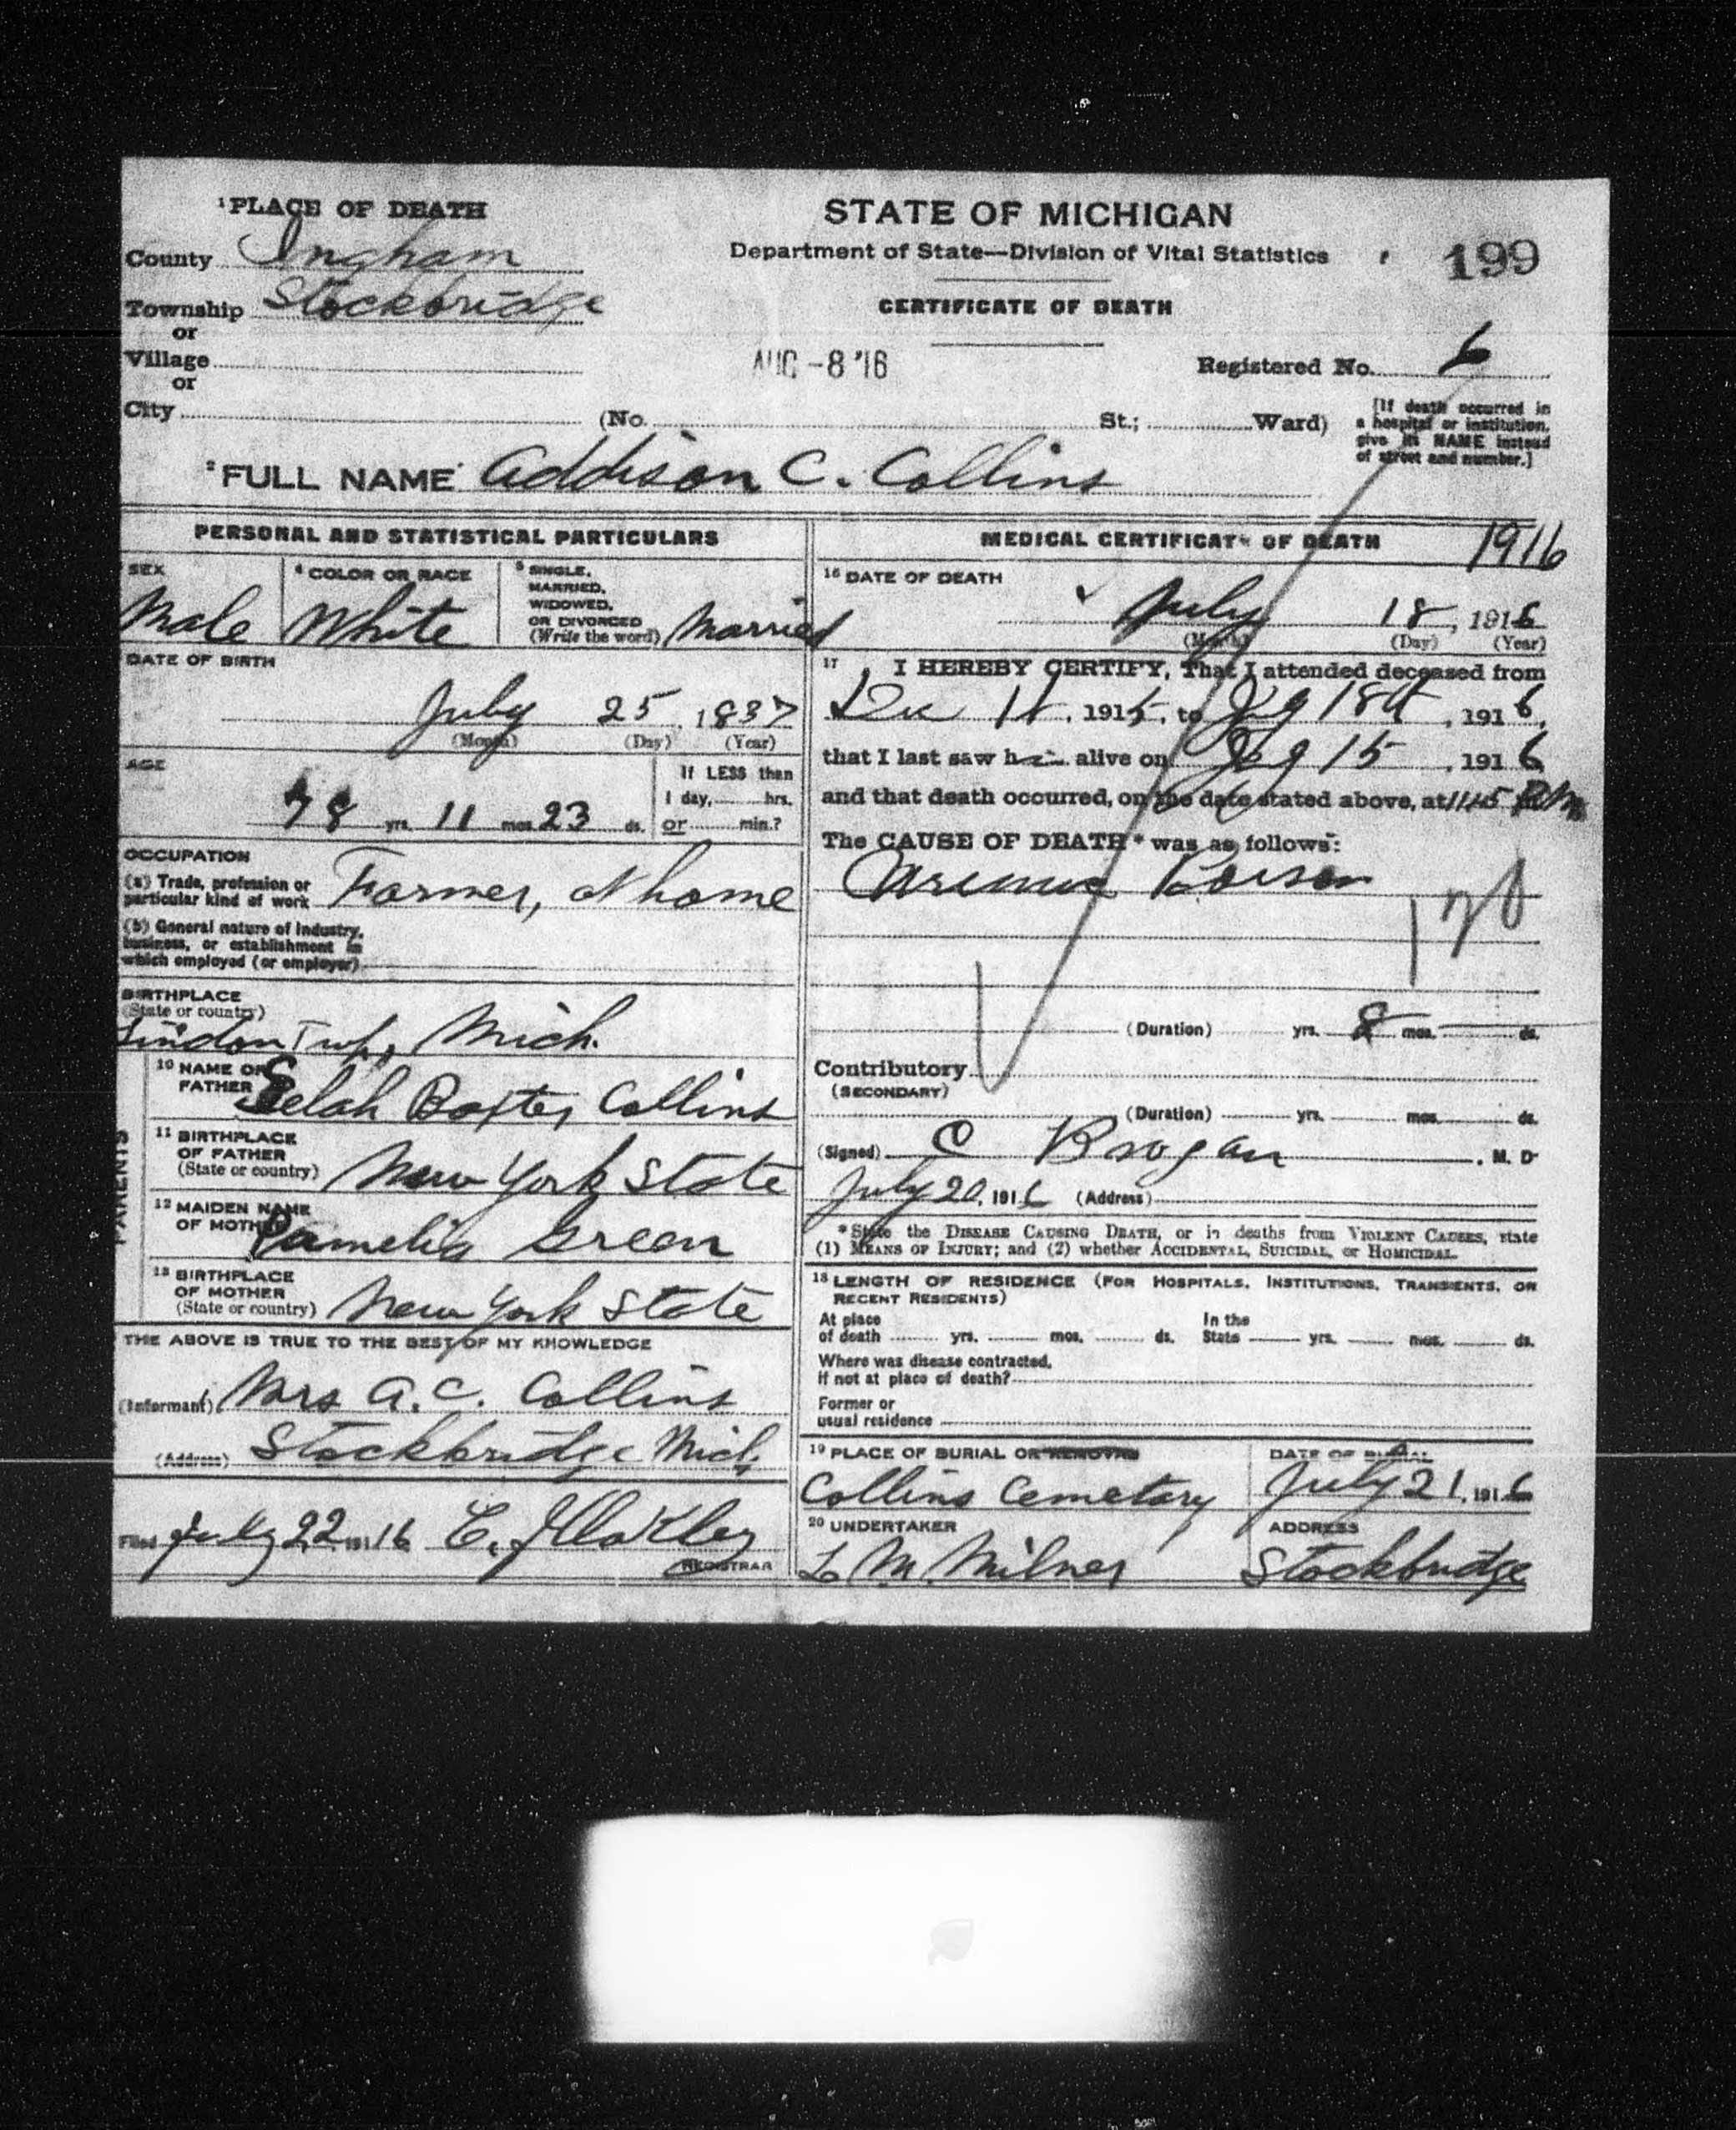 1 PLACE OF DEATH
County Ingham
Township Stockbridge
or
Village
or
City (No. St.; Ward)
STATE OF MICHIGAN
Department of State—Division of Vital Statistics
199
CERTIFICATE OF DEATH
AUG -8 '16
Registered No. 6
[If death occurred in
a hospital or institution,
give its NAME instead
of street and number.]
2 FULL NAME Addison C. Collins
PERSONAL AND STATISTICAL PARTICULARS
SEX
Male
4 COLOR OR RACE
White
5 SINGLE,
MARRIED,
WIDOWED,
OR DIVORCED
(Write the word) Married
DATE OF BIRTH
July 25, 1837
(Month) (Day) (Year)
AGE
78 yrs. 11 mos. 23 ds.
If LESS than
1 day, hrs.
or min.?
OCCUPATION
(a) Trade, profession or
particular kind of work Farmer, at home
(b) General nature of Industry,
business, or establishment in
which employed (or employer)
BIRTHPLACE
(State or country)
Lindon Twp, Mich.
PARENTS
10 NAME OF
FATHER Selah Baxter Collins
11 BIRTHPLACE
OF FATHER
(State or country) New York State
12 MAIDEN NAME
OF MOTHER Pamelia Green
13 BIRTHPLACE
OF MOTHER
(State or country) New York State
THE ABOVE IS TRUE TO THE BEST OF MY KNOWLEDGE
(Informant) Mrs A. C. Collins
(Address) Stockbridge Mich.
Filed July 22 1916
REGISTRAR
MEDICAL CERTIFICATE OF DEATH
1916
16 DATE OF DEATH
July 18, 1916
(Month) (Day) (Year)
17 I HEREBY CERTIFY, That I attended deceased from
Dec 11, 1915, to July 18th, 1916,
that I last saw him alive on July 15, 1916
and that death occurred, on the date stated above, at 11:15 PM
The CAUSE OF DEATH* was as follows:
Uremic Poison
120
(Duration) yrs. 8 mos. ds.
Contributory
(SECONDARY)
(Duration) yrs. mos. ds.
(Signed) C Brogan, M. D
July 20, 1916 (Address)
*State the DISEASE CAUSING DEATH, or in deaths from VIOLENT CAUSES, state
(1) MEANS OF INJURY; and (2) whether ACCIDENTAL, SUICIDAL, or HOMICIDAL.
18 LENGTH OF RESIDENCE (FOR HOSPITALS, INSTITUTIONS, TRANSIENTS, OR
RECENT RESIDENTS)
At place
of death yrs. mos. ds.
In the
State yrs. mos. ds.
Where was disease contracted,
if not at place of death?
Former or
usual residence
19 PLACE OF BURIAL OR REMOVAL
Collins Cemetary
DATE OF BURIAL
July 21, 1916
20 UNDERTAKER
L M. Milner
ADDRESS
Stockbridge